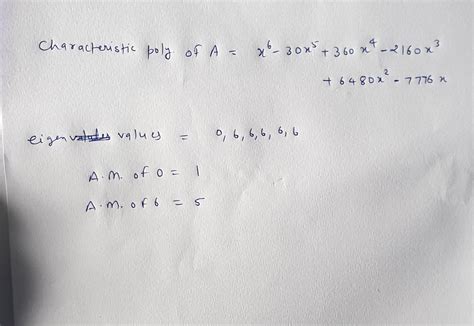 Characteristic poly of A = x⁶ - 30x⁵ + 360x⁴ - 2160x³
+ 6480x² - 7776x
eigen values = 0, 6, 6, 6, 6, 6
A.M. of 0 = 1
A.M. of 6 = 5